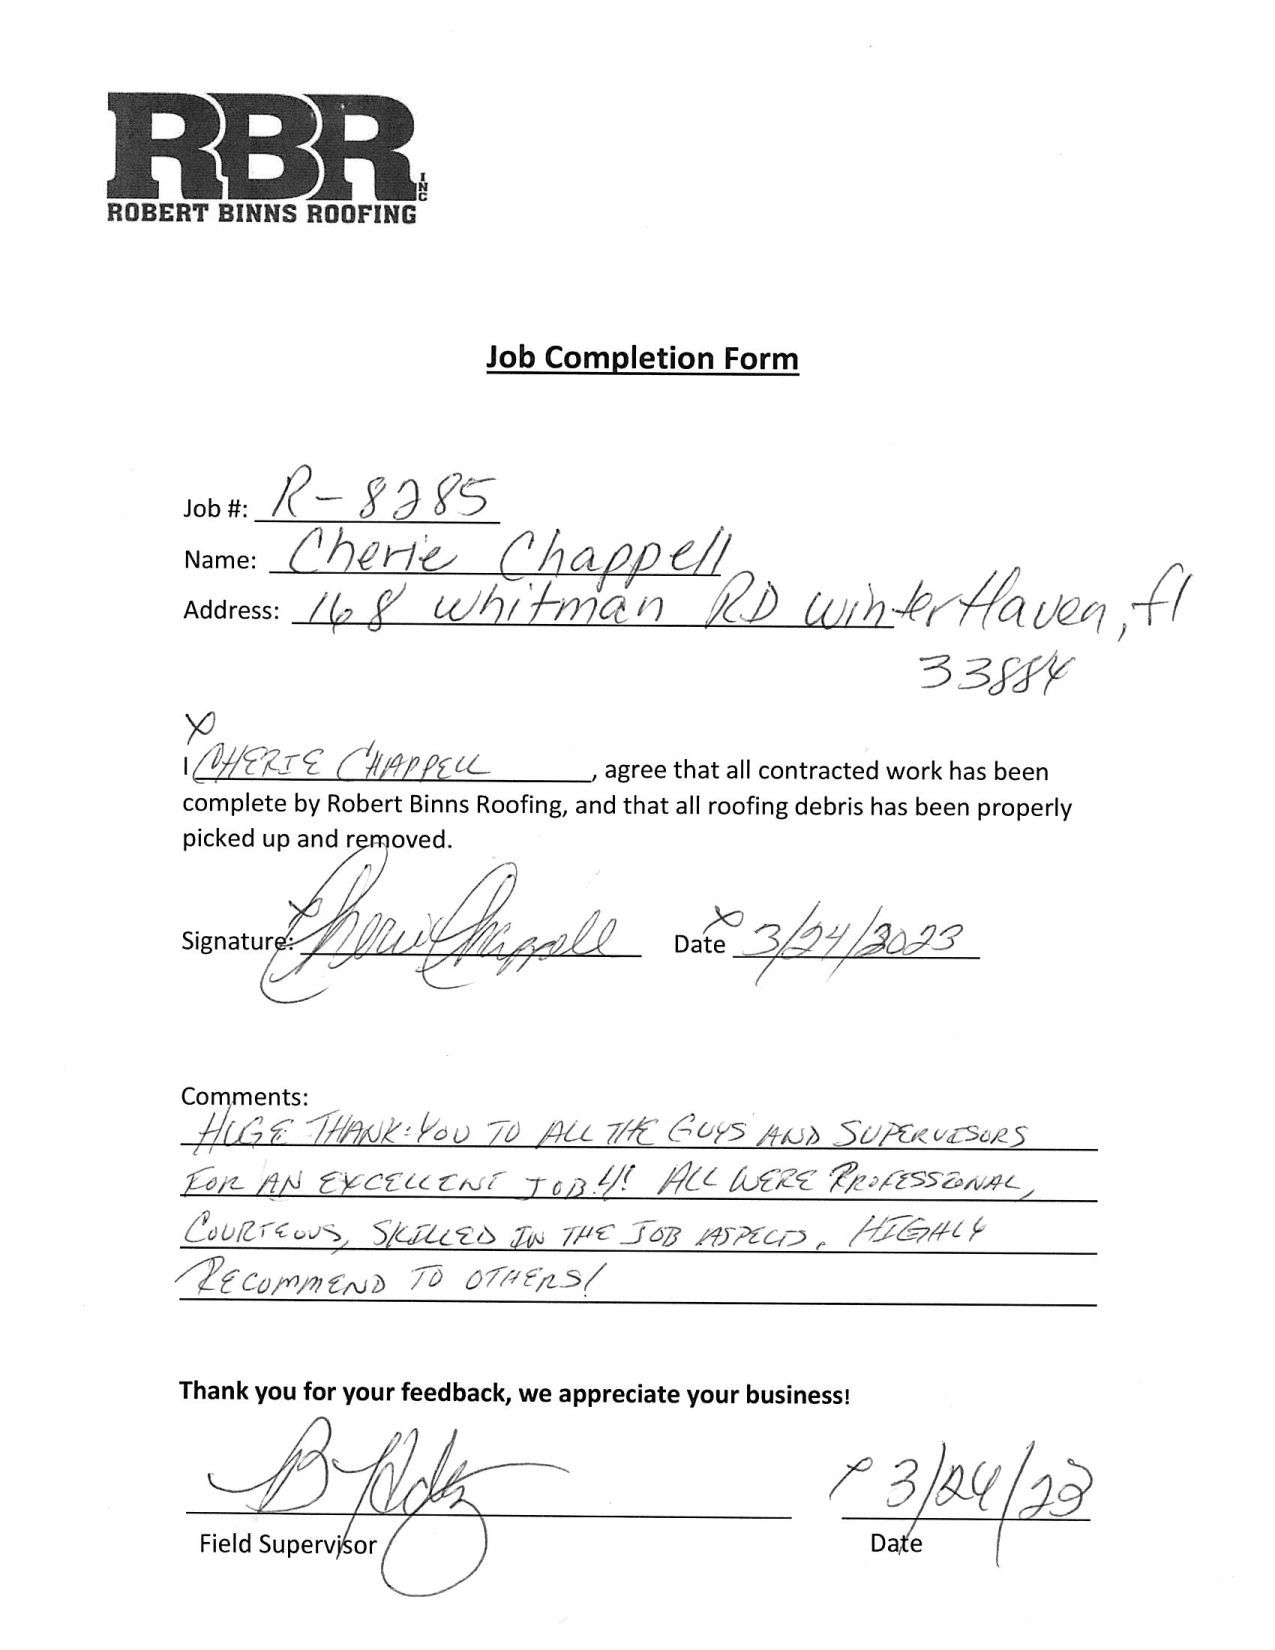 RBR INC
ROBERT BINNS ROOFING
Job Completion Form
Job #: R-8285
Name: Cherie Chappell
Address: 168 Whitman RD Winter Haven, fl
33884
X
I CHERIE CHAPPELL, agree that all contracted work has been
complete by Robert Binns Roofing, and that all roofing debris has been properly
picked up and removed.
Signature: X Cherie Chappell Date X 3/24/2023
Comments:
HUGE THANK-YOU TO ALL THE GUYS AND SUPERVISORS
FOR AN EXCELLENT JOB!! ALL WERE PROFESSIONAL,
COURTEOUS, SKILLED IN THE JOB ASPECTS. HIGHLY
RECOMMEND TO OTHERS!
Thank you for your feedback, we appreciate your business!
X 3/24/23
Field Supervisor Date